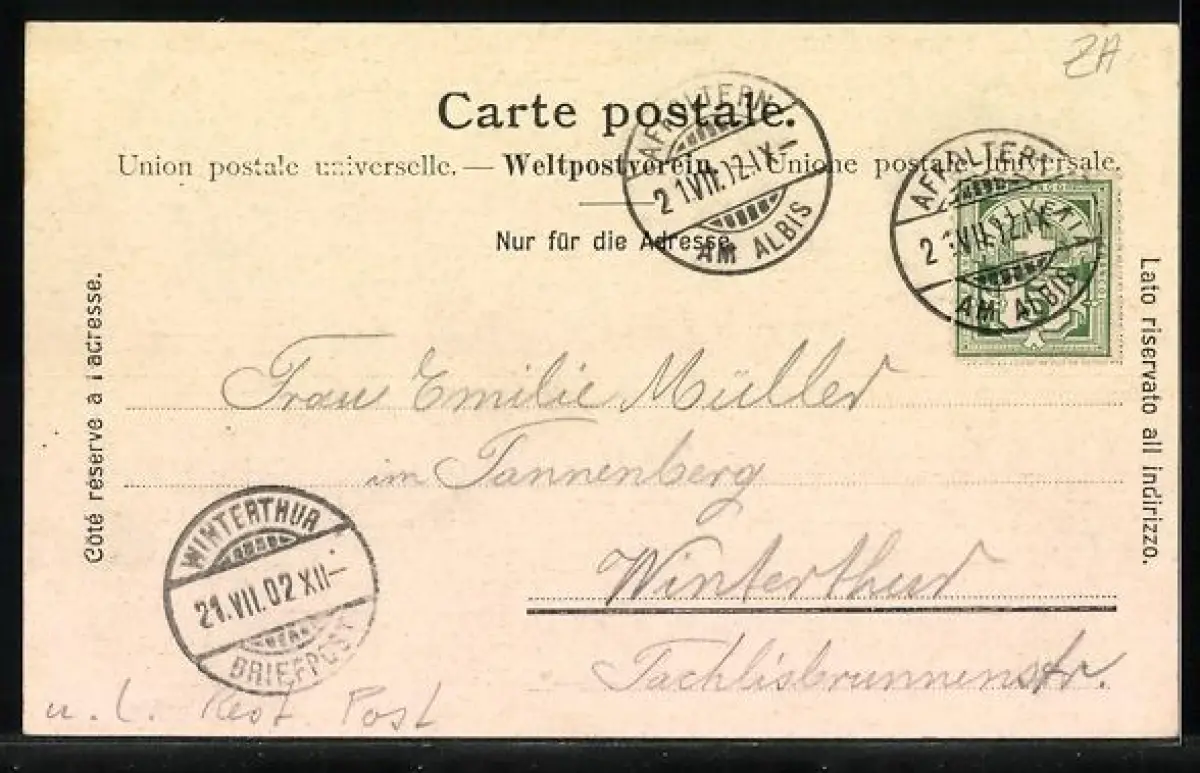 ZH
Carte postale.
Union postale universelle. — Weltpostverein. — Unione postale universale.
Nur für die Adresse.
AFFOLTERN
21.VII.02.IX–
AM ALBIS
AFFOLTERN
21.VII.02.IX
AM ALBIS
Côté réservé à l'adresse.
Lato riservato all indirizzo.
Frau Emilie Müller
im Tannenberg
Winterthur
Tachlisbrunnenstr.
WINTERTHUR
21.VII.02 XII–
BRIEFPOST
u. l. Rest. Post